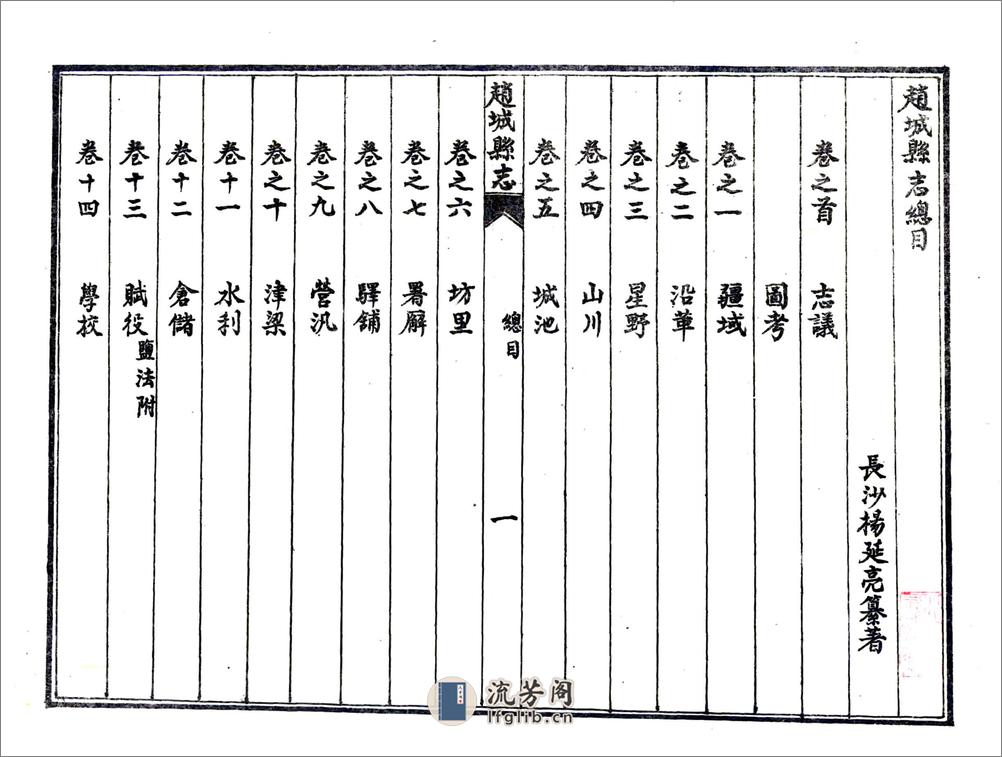 趙城縣志總目
長沙楊延亮纂著
卷之首 志議
圖考
卷之一 疆域
卷之二 沿革
卷之三 星野
卷之四 山川
卷之五 城池
趙城縣志 總目 一
卷之六 坊里
卷之七 署廨
卷之八 驛舖
卷之九 營汛
卷之十 津梁
卷十一 水利
卷十二 倉儲
卷十三 賦役 鹽法附
卷十四 學校
流芳阁
lfglib.cn